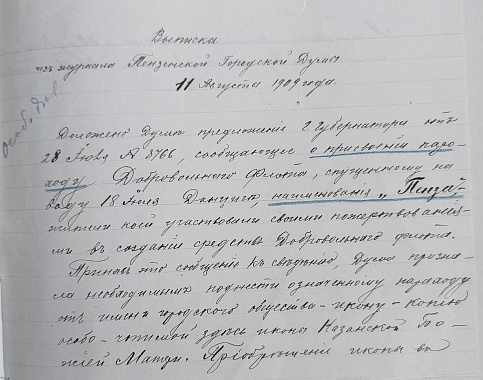 Выписка
изъ журнала Пензенской Городской Думы
11 Августа 1909 года.
Доложено Думѣ предложеніе Г Губернатора отъ
28 Іюля № 8766, сообщающее о присвоеніи паро-
ходу Добровольнаго Флота, спущенному на
воду 18 Іюля Данцигъ, наименованія „Пенза",
жители коей участвовали своими пожертвованія-
ми въ созданіи средствъ Добровольнаго флота.
Принявъ это сообщеніе къ свѣдѣнію, Дума призна-
ла необходимымъ поднести означенному пароходу
отъ имени городского общества - икону - копію
особо-чтимой здѣсь иконы Казанской Бо-
жіей Матери. Пріобрѣтеніе иконы въ